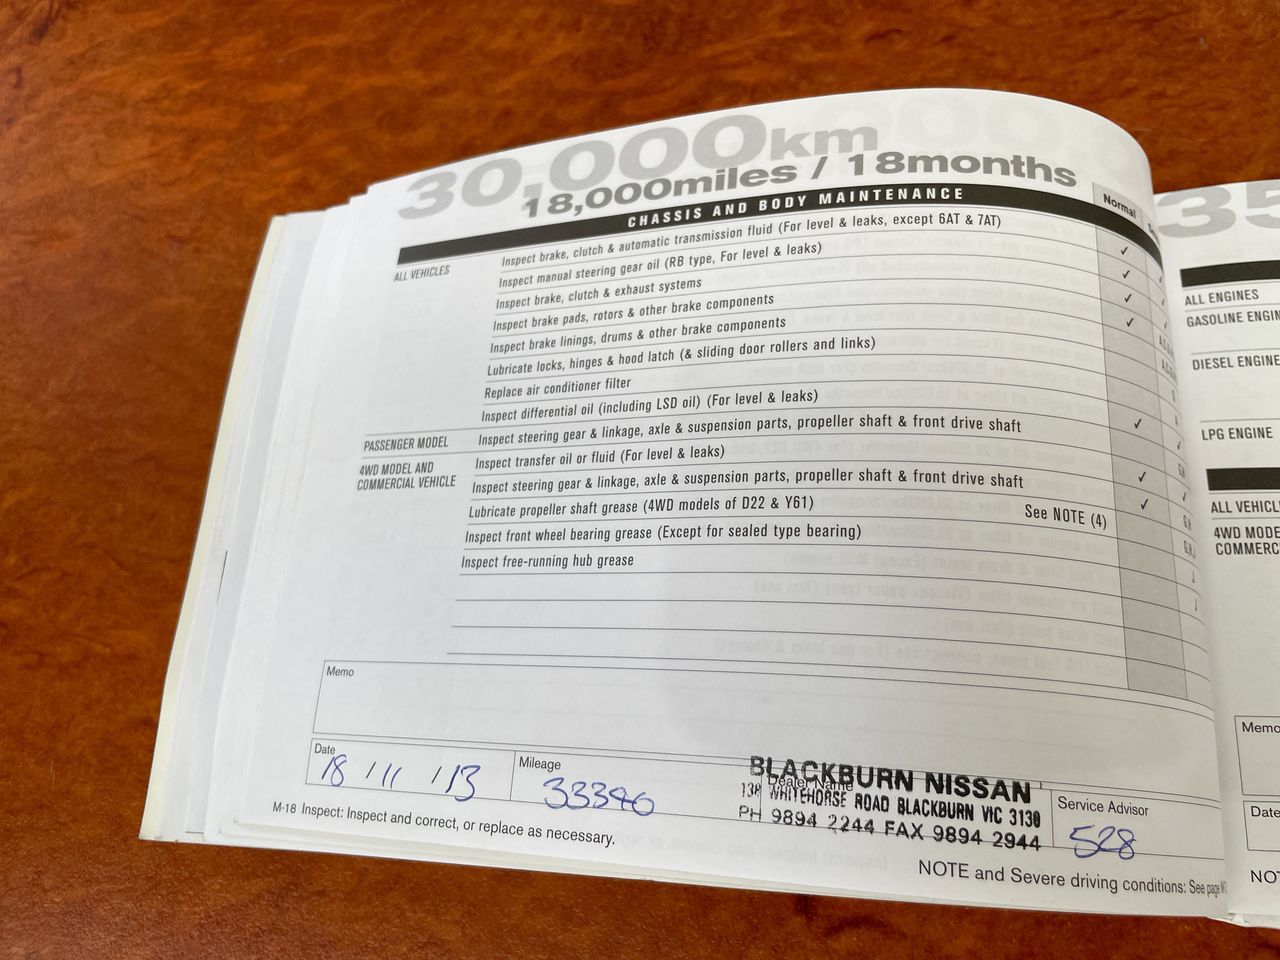 30,000km
18,000miles / 18months
CHASSIS AND BODY MAINTENANCE
Normal
ALL VEHICLES
Inspect brake, clutch & automatic transmission fluid (For level & leaks, except 6AT & 7AT) ✓
Inspect manual steering gear oil (RB type, For level & leaks) ✓
Inspect brake, clutch & exhaust systems ✓
Inspect brake pads, rotors & other brake components ✓
Inspect brake linings, drums & other brake components
Lubricate locks, hinges & hood latch (& sliding door rollers and links)
Replace air conditioner filter
Inspect differential oil (including LSD oil) (For level & leaks) ✓
PASSENGER MODEL
Inspect steering gear & linkage, axle & suspension parts, propeller shaft & front drive shaft
4WD MODEL AND
COMMERCIAL VEHICLE
Inspect transfer oil or fluid (For level & leaks) ✓
Inspect steering gear & linkage, axle & suspension parts, propeller shaft & front drive shaft ✓
Lubricate propeller shaft grease (4WD models of D22 & Y61) See NOTE (4)
Inspect front wheel bearing grease (Except for sealed type bearing)
Inspect free-running hub grease
Memo
Date
18 / 11 / 13
Mileage
33340
Dealer Name
BLACKBURN NISSAN
WHITEHORSE ROAD BLACKBURN VIC 3130
PH 9894 2244 FAX 9894 2944
Service Advisor
528
M-18 Inspect: Inspect and correct, or replace as necessary.
NOTE and Severe driving conditions: See page
35
ALL ENGINES
GASOLINE
DIESEL ENGINE
LPG ENGINE
ALL
4WD
Memo
Date